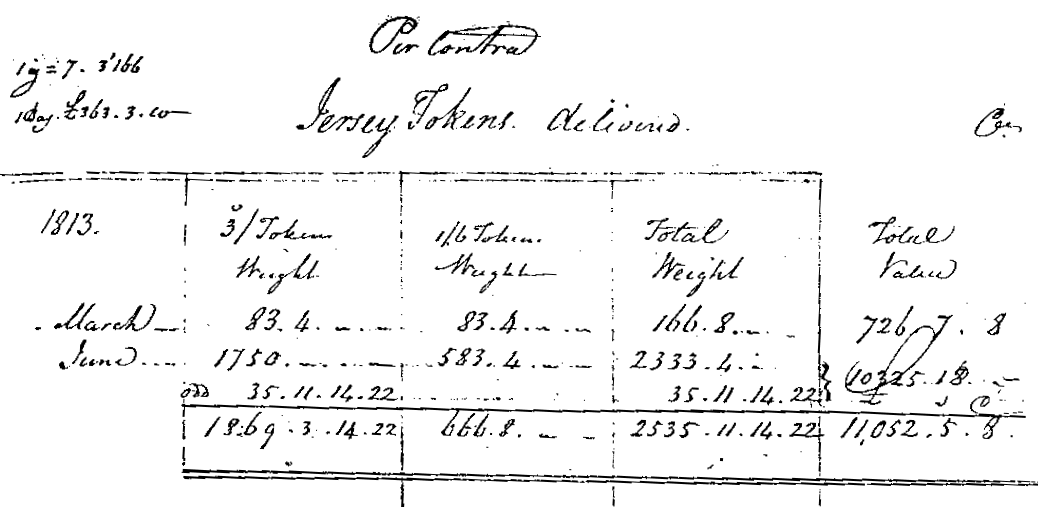 Per Contra
1 jy = 7. 3'166
1 Bag. £363.3.10
Jersey Tokens. delivered.
Cr.
1813. 3/Token 1/6 Token Total Total
Weight Weight Weight Value
March 83.4. 83.4. 166.8. 726 7. 8
June 1750. 583.4 2333.4. 10325.18.
odd 35.11.14.22 35.11.14.22 £ s d
1869.3.14.22 666.8. 2535.11.14.22 11,052.5.8.